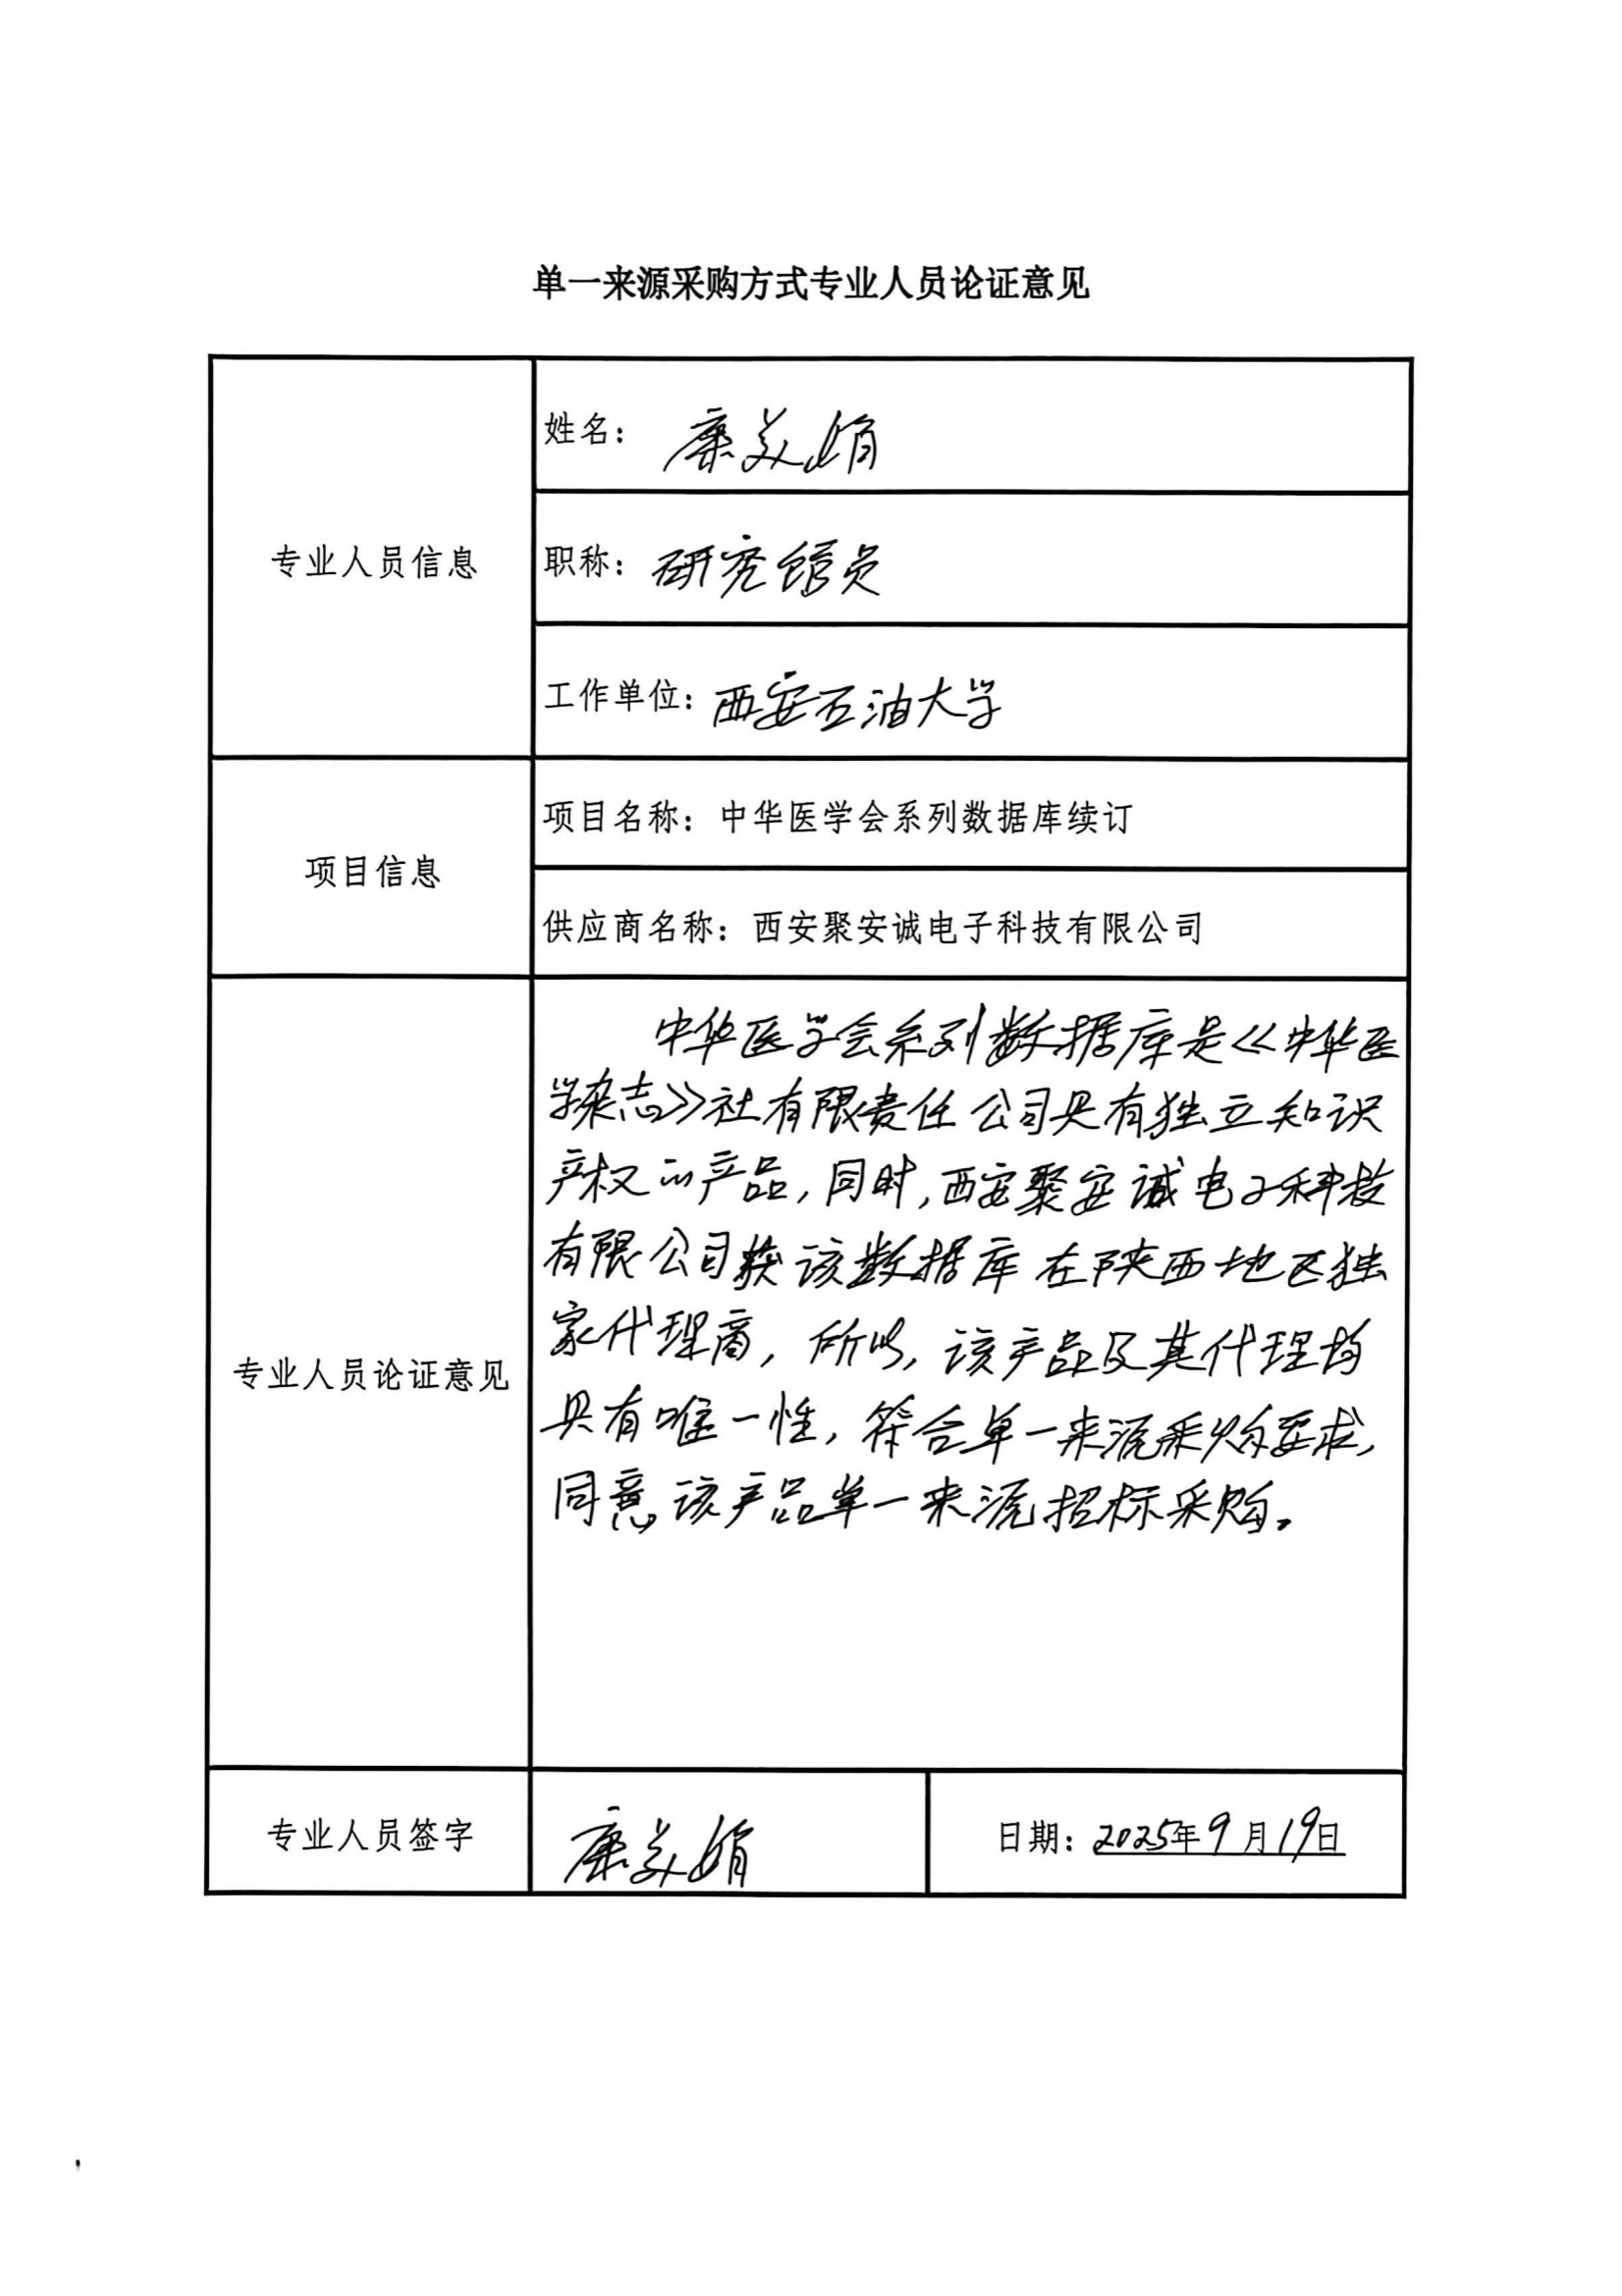 单一来源采购方式专业人员论证意见
专业人员信息
姓名：康美娟
职称：研究馆员
工作单位：西安石油大学
项目信息
项目名称：中华医学会系列数据库续订
供应商名称：西安聚安诚电子科技有限公司
专业人员论证意见
中华医学会系列数据库是《中华医
学杂志》社有限责任公司具有独立知识
产权的产品，同时，西安聚安诚电子科技
有限公司获该数据库在陕西地区独
家代理商，所以，该产品及其代理均
具有唯一性，符合单一来源采购要求，
同意该产品单一来源招标采购。
专业人员签字
康美娟
日期：2025年9月19日